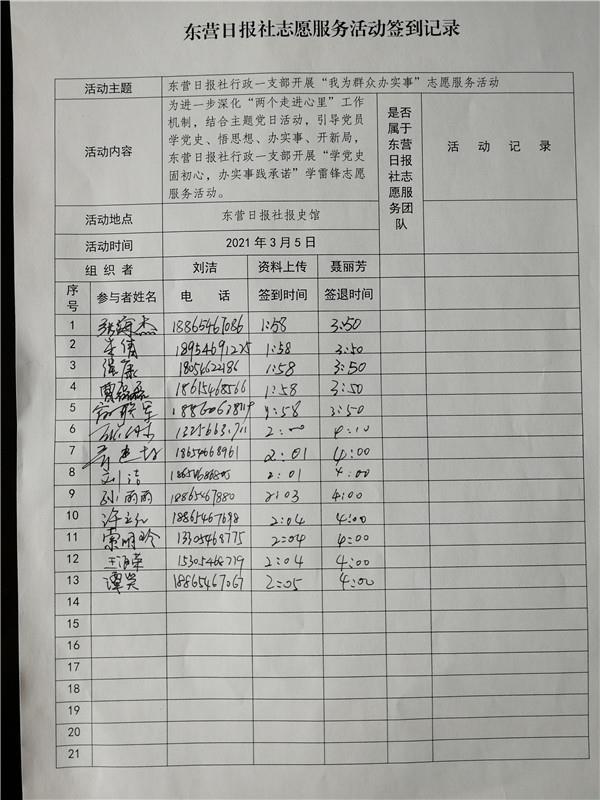 东营日报社志愿服务活动签到记录
活动主题 东营日报社行政一支部开展“我为群众办实事”志愿服务活动
活动内容
为进一步深化“两个走进心里”工作
机制，结合主题党日活动，引导党员
学党史、悟思想、办实事、开新局，
东营日报社行政一支部开展“学党史
固初心，办实事践承诺”学雷锋志愿
服务活动。
是否
属于
东营
日报
社志
愿服
务团
队
活 动 记 录
活动地点 东营日报社报史馆
活动时间 2021 年 3 月 5 日
组 织 者 刘洁 资料上传 聂丽芳
序号 参与者姓名 电 话 签到时间 签退时间
1 张海杰 18865467086 1:58 3:50
2 李倩 18954691225 1:58 3:50
3 18054622186 1:58 3:50
4 18615468566 1:58 3:50
5 1:58 3:50
6 2:00 4:10
7 18654668961 2:01 4:00
8 刘洁 2:01 4:00
9 孙丽丽 18865467880 2:03 4:00
10 18865467698 2:04 4:00
11 宗明玲 13305468775 2:04 4:00
12 15305468779 2:04 4:00
13 谭笑 18865467067 2:05 4:00
14
15
16
17
18
19
20
21